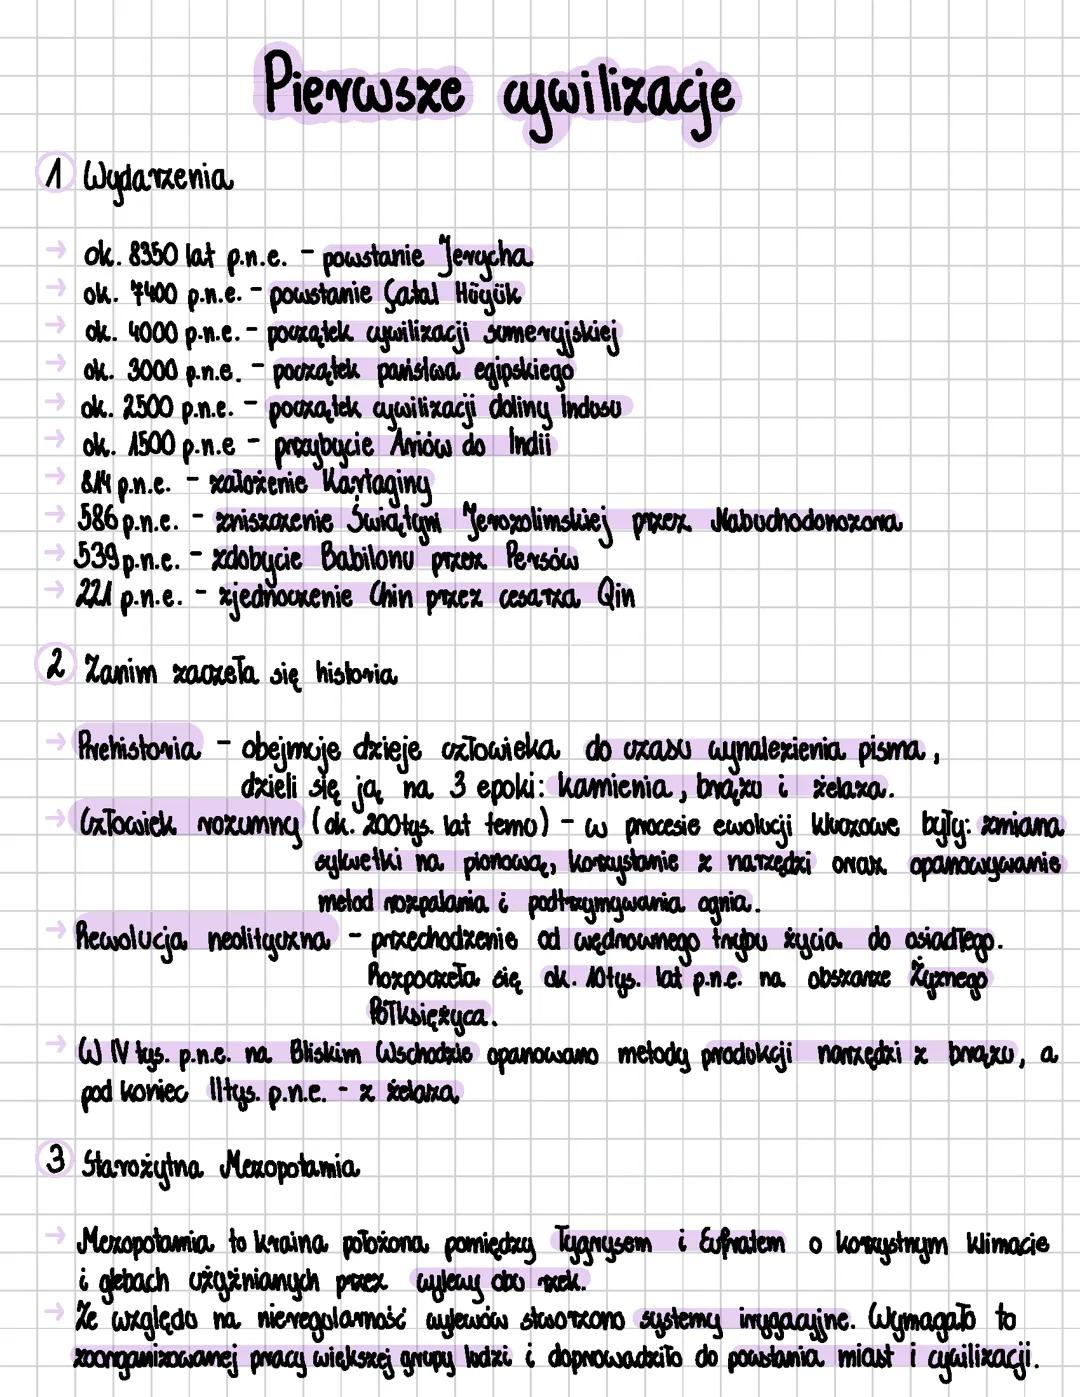 Pierwsze cywilizacje
1 Wydarzenia
→ ok. 8350 lat p.n.e. - powstanie Jerycha
→ ok. 7400 p.n.e. - powstanie Çatal Hüyük
→ ok. 4000 p.n.e. - początek cywilizacji sumeryjskiej
→ ok. 3000 p.n.e. - początek państwa egipskiego
→ ok. 2500 p.n.e. - początek cywilizacji doliny Indusu
→ ok. 1500 p.n.e - przybycie Ariów do Indii
→ 814 p.n.e. - założenie Kartaginy
→ 586 p.n.e. - zniszczenie Świątyni Jerozolimskiej przez Nabuchodonozora
→ 539 p.n.e. - zdobycie Babilonu przez Persów
→ 221 p.n.e. - zjednoczenie Chin przez cesarza Qin
2 Zanim zaczeła się historia
→ Prehistoria - obejmuje dzieje człowieka do czasu wynalezienia pisma,
dzieli się ją na 3 epoki: kamienia, brązu i żelaza.
→ Człowiek rozumny (ok. 200tys. lat temu) - w procesie ewolucji kluczowe były: zmiana
sylwetki na pionową, korzystanie z narzędzi oraz opanowywanie
metod rozpalania i podtrzymywania ognia.
→ Rewolucja neolityczna - przechodzenie od wędrownego trybu życia do osiadłego.
Rozpoczeła się ok. 10tys. lat p.n.e. na obszarze Żyznego
Półksiężyca.
→ W IV tys. p.n.e. na Bliskim Wschodzie opanowano metody produkcji narzędzi z brązu, a
pod koniec II tys. p.n.e. - z żelaza
3 Starożytna Mezopotamia
→ Mezopotamia to kraina położona pomiędzy Tygrysem i Eufratem o korzystnym klimacie
i glebach użyźnianych przez wylewy obu rzek.
→ Ze względu na nieregularność wylewów stworzono systemy irygacyjne. Wymagało to
zoorganizowanej pracy większej grupy ludzi i doprowadziło do powstania miast i cywilizacji.